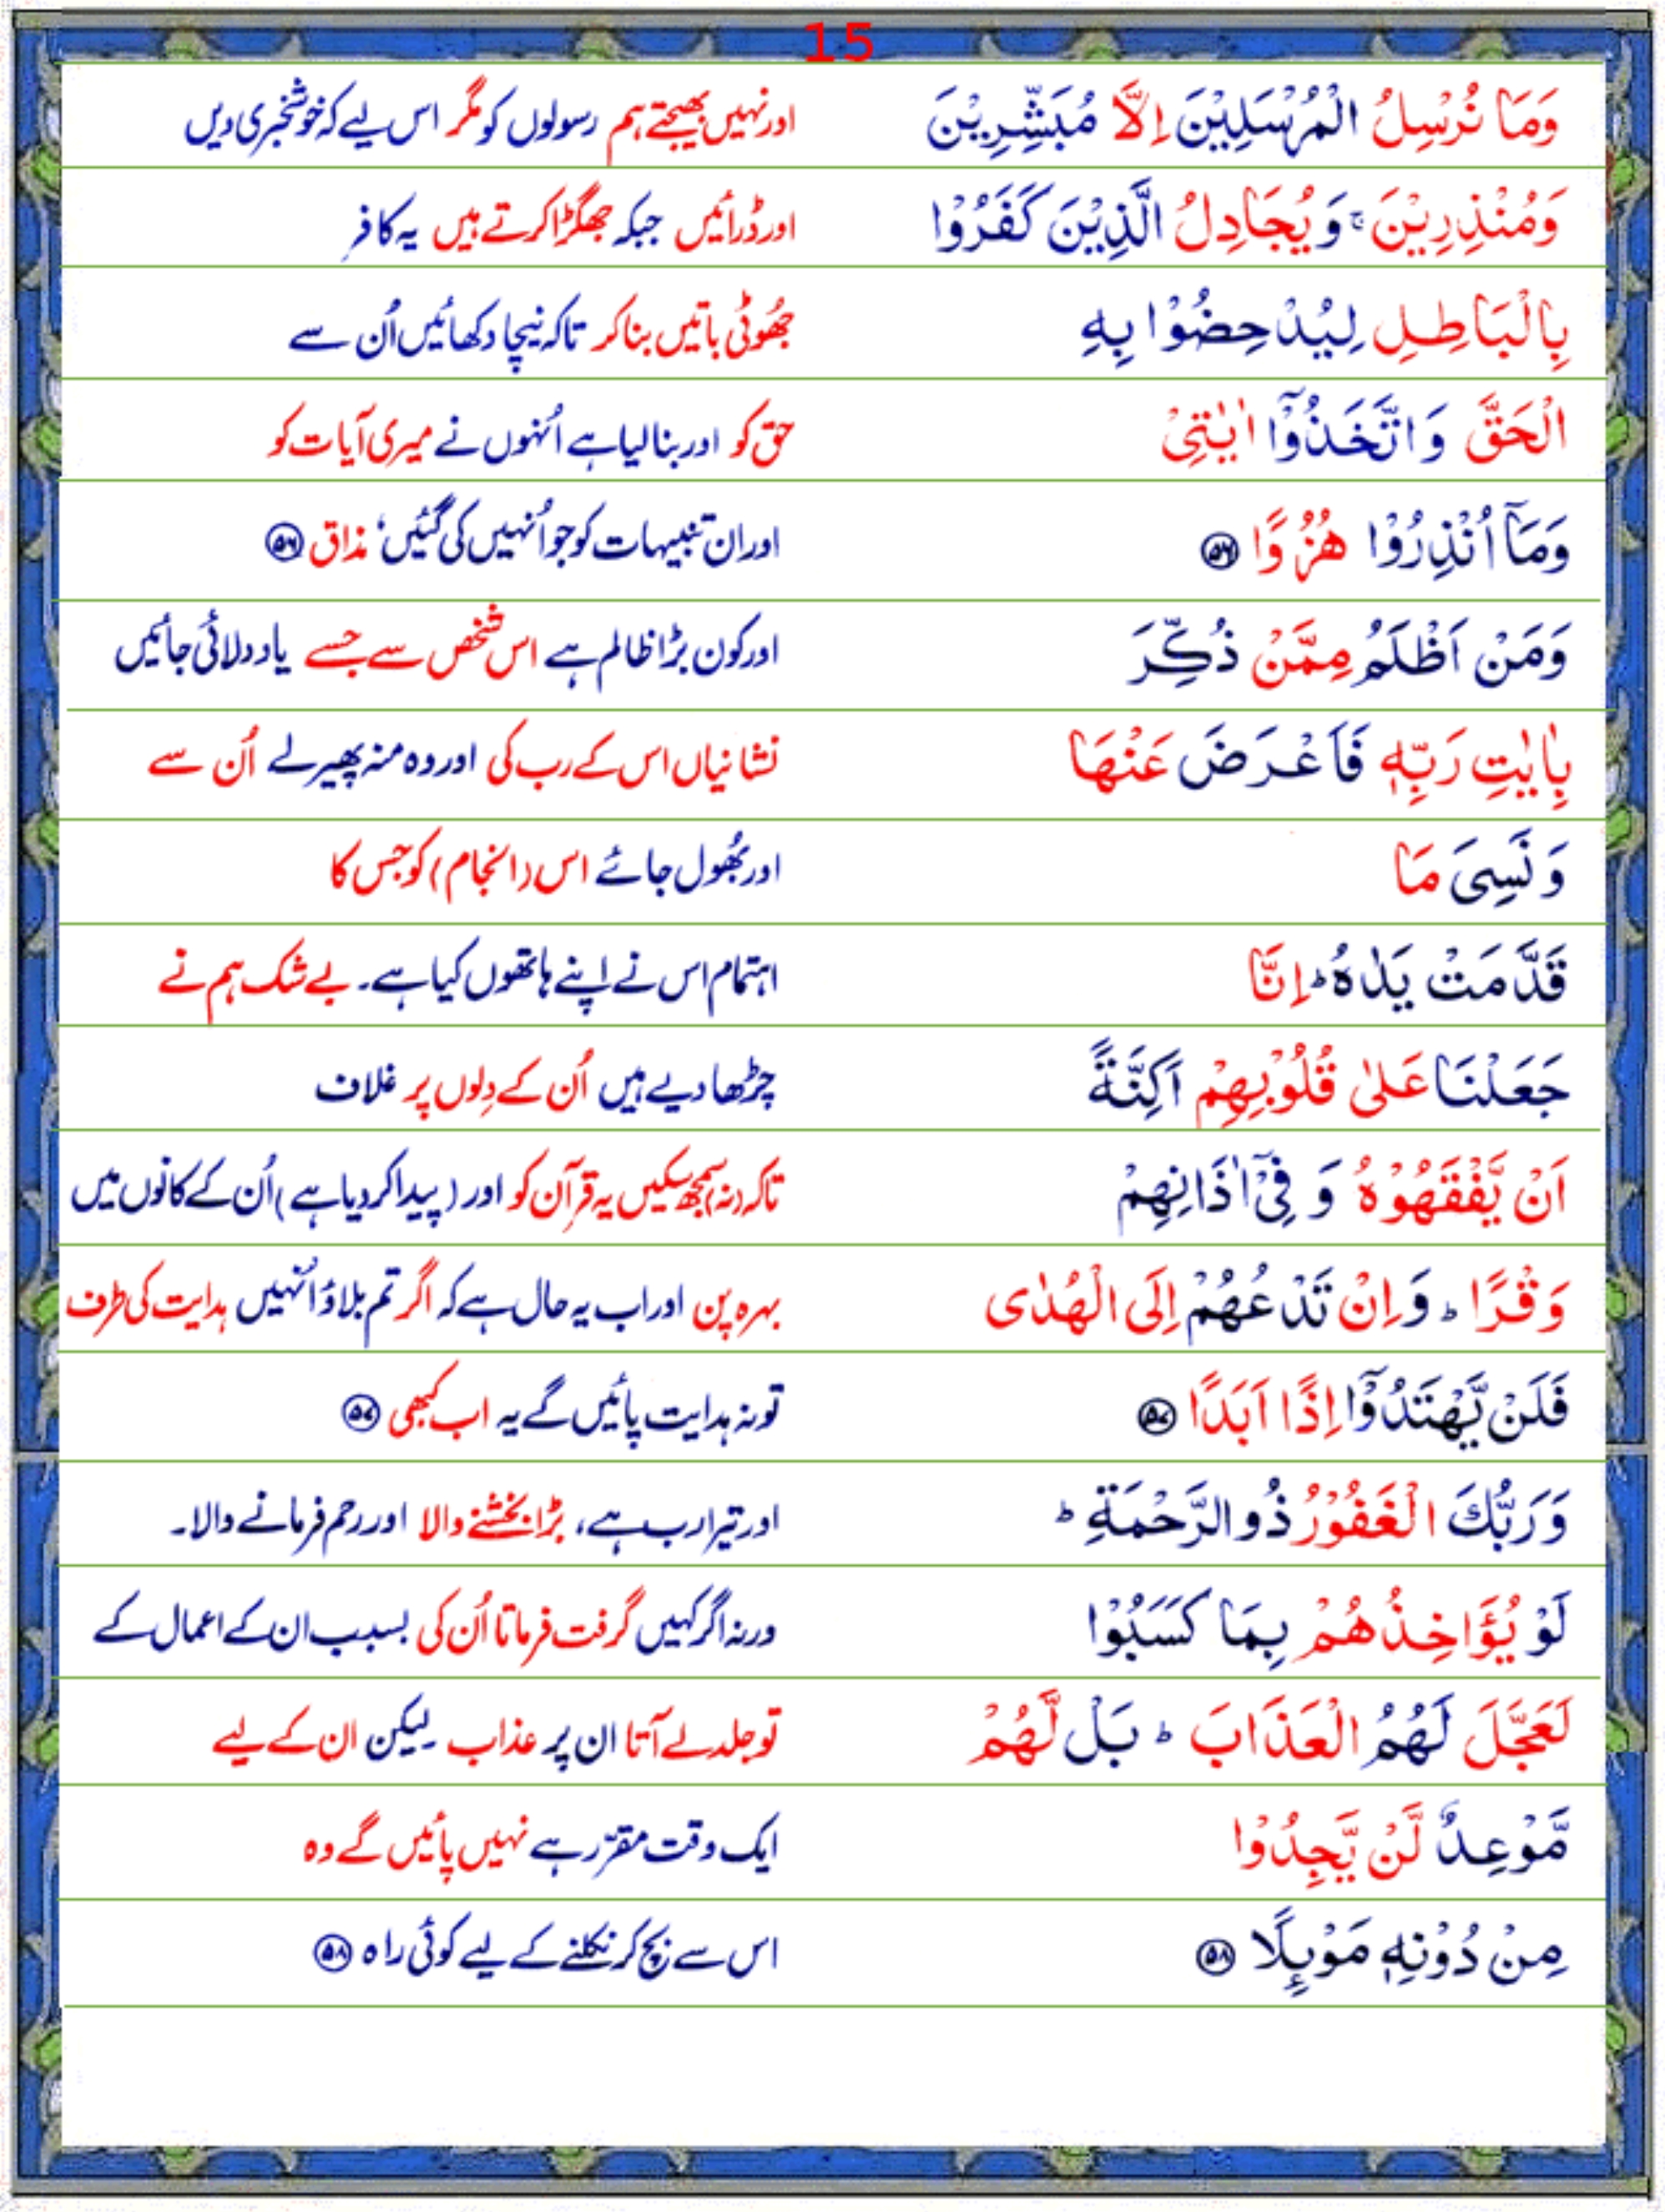 15
وَمَا نُرْسِلُ الْمُرْسَلِيْنَ اِلَّا مُبَشِّرِيْنَ اور نہیں بھیجتے ہم رسولوں کو مگر اس لیے کہ خوشخبری دیں
وَمُنْذِرِيْنَ ۚ وَيُجَادِلُ الَّذِيْنَ كَفَرُوْا اور ڈرائیں جبکہ جھگڑا کرتے ہیں یہ کافر
بِالْبَاطِلِ لِيُدْحِضُوْا بِهِ جھُوٹی باتیں بنا کر تاکہ نیچا دکھائیں اُن سے
الْحَقَّ وَاتَّخَذُوْٓا اٰيٰتِيْ حق کو اور بنا لیا ہے اُنہوں نے میری آیات کو
وَمَآ اُنْذِرُوْا هُزُوًا ۝۵۶ اور ان تنبیہات کو جو اُنہیں کی گئیں، مذاق ۝۵۶
وَمَنْ اَظْلَمُ مِمَّنْ ذُكِّرَ اور کون بڑا ظالم ہے اس شخص سے جسے یاد دلائی جائیں
بِاٰيٰتِ رَبِّهٖ فَاَعْرَضَ عَنْهَا نشانیاں اس کے رب کی اور وہ منہ پھیر لے اُن سے
وَنَسِيَ مَا اور بھُول جائے اس (انجام) کو جس کا
قَدَّمَتْ يَدٰهُ ؕ اِنَّا اہتمام اس نے اپنے ہاتھوں کیا ہے۔ بے شک ہم نے
جَعَلْنَا عَلٰى قُلُوْبِهِمْ اَكِنَّةً چڑھا دیے ہیں اُن کے دِلوں پر غلاف
اَنْ يَّفْقَهُوْهُ وَفِيْٓ اٰذَانِهِمْ تاکہ (نہ) سمجھ سکیں یہ قرآن کو اور (پیدا کر دیا ہے) اُن کے کانوں میں
وَقْرًا ؕ وَاِنْ تَدْعُهُمْ اِلَى الْهُدٰى بہرہ پن اور اب یہ حال ہے کہ اگر تم بلاؤ اُنہیں ہدایت کی طرف
فَلَنْ يَّهْتَدُوْٓا اِذًا اَبَدًا ۝۵۷ تو نہ ہدایت پائیں گے یہ اب کبھی ۝۵۷
وَرَبُّكَ الْغَفُوْرُ ذُو الرَّحْمَةِ ؕ اور تیرا رب ہے، بڑا بخشنے والا اور رحم فرمانے والا۔
لَوْ يُؤَاخِذُهُمْ بِمَا كَسَبُوْا ورنہ اگر کہیں گرفت فرماتا اُن کی بسبب ان کے اعمال کے
لَعَجَّلَ لَهُمُ الْعَذَابَ ؕ بَلْ لَّهُمْ تو جلد لے آتا ان پر عذاب۔ لیکن ان کے لیے
مَّوْعِدٌ لَّنْ يَّجِدُوْا ایک وقت مقرّر ہے نہیں پائیں گے وہ
مِنْ دُوْنِهٖ مَوْىِٕلًا ۝۵۸ اس سے بچ کر نکلنے کے لیے کوئی راہ ۝۵۸